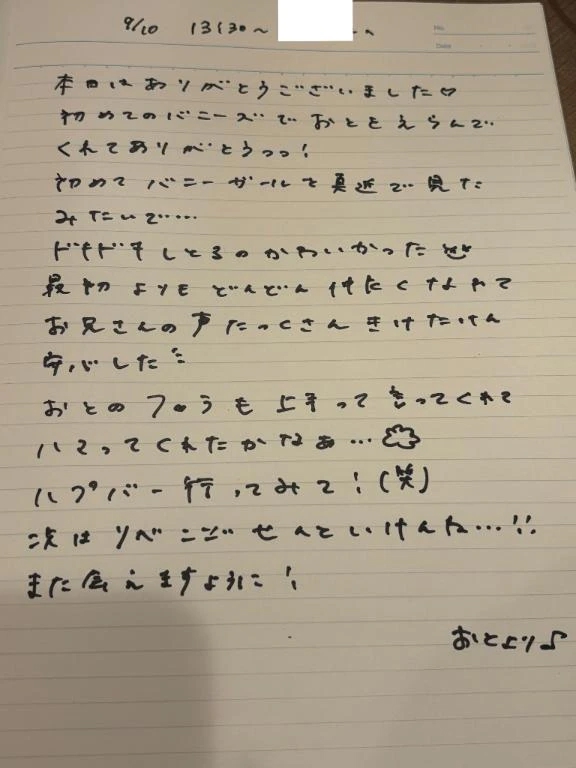 9/10 13:30〜 へ
No.
Date
本日はありがとうございました♡
初めてのバニーズでおとをえらんで
くれてありがとうっっ!
初めてバニーガールを真近で見た
みたいで…
ドキドキしとるのかわいかった
最初よりもどんどん けたくなれて
お兄さんの声たっくさんきけたけん
安心した
おとのフェラも上手って言ってくれて
ハマってくれたかなぁ…
ハプバー行ってみて!(笑)
次はリベンジせんといけんね…!!
また会えますように!
おとより♪